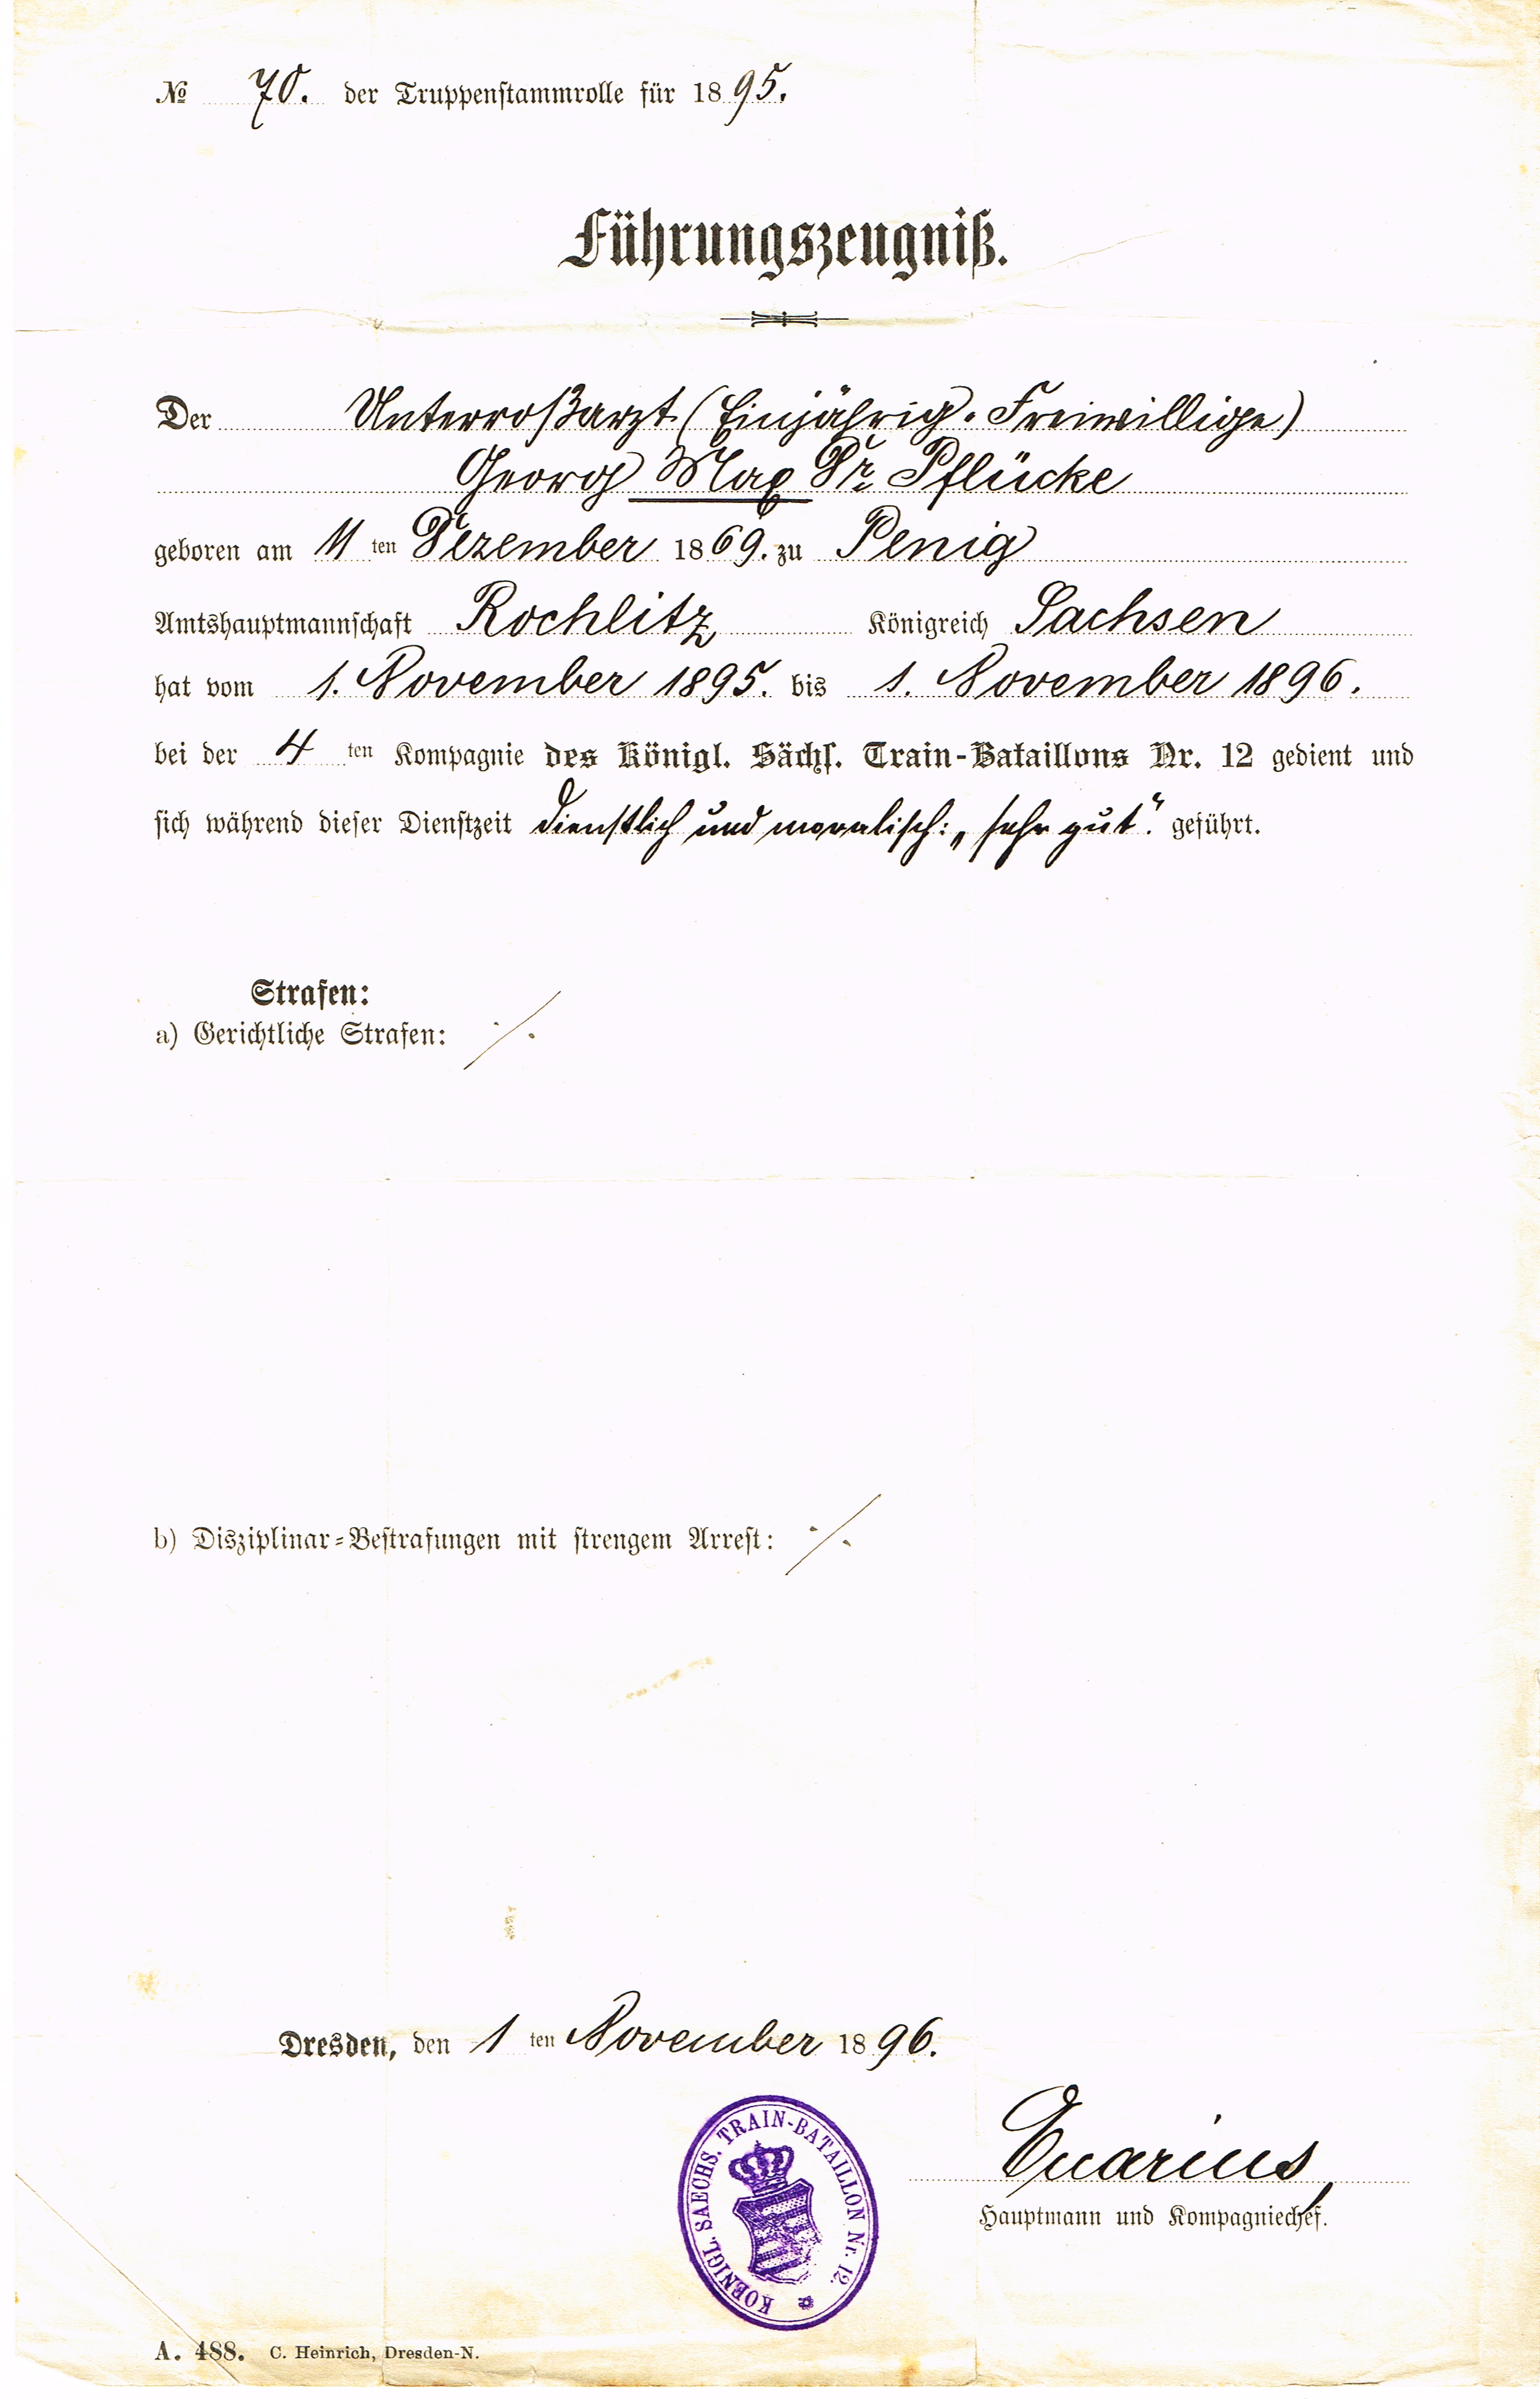 № 70. der Truppenstammrolle für 1895.
Führungszeugniß.
Der Unterroßarzt (Einjährig-Freiwillige)
Georg Max Dr. Pflücke
geboren am 11 ten Dezember 1869. zu Penig
Amtshauptmannschaft Rochlitz, Königreich Sachsen
hat vom 1. November 1895. bis 1. November 1896.
bei der 4 ten Kompagnie des Königl. Sächs. Train-Bataillons Nr. 12 gedient und
sich während dieser Dienstzeit dienstlich und moralisch: „sehr gut“. geführt.
Strafen:
a) Gerichtliche Strafen: ./.
b) Disziplinar-Bestrafungen mit strengem Arrest: ./.
Dresden, den 1 ten November 1896.
KOENIGL. SAECHS. TRAIN-BATAILLON Nr. 12.
Hauptmann und Kompagniechef.
A. 488. C. Heinrich, Dresden-N.